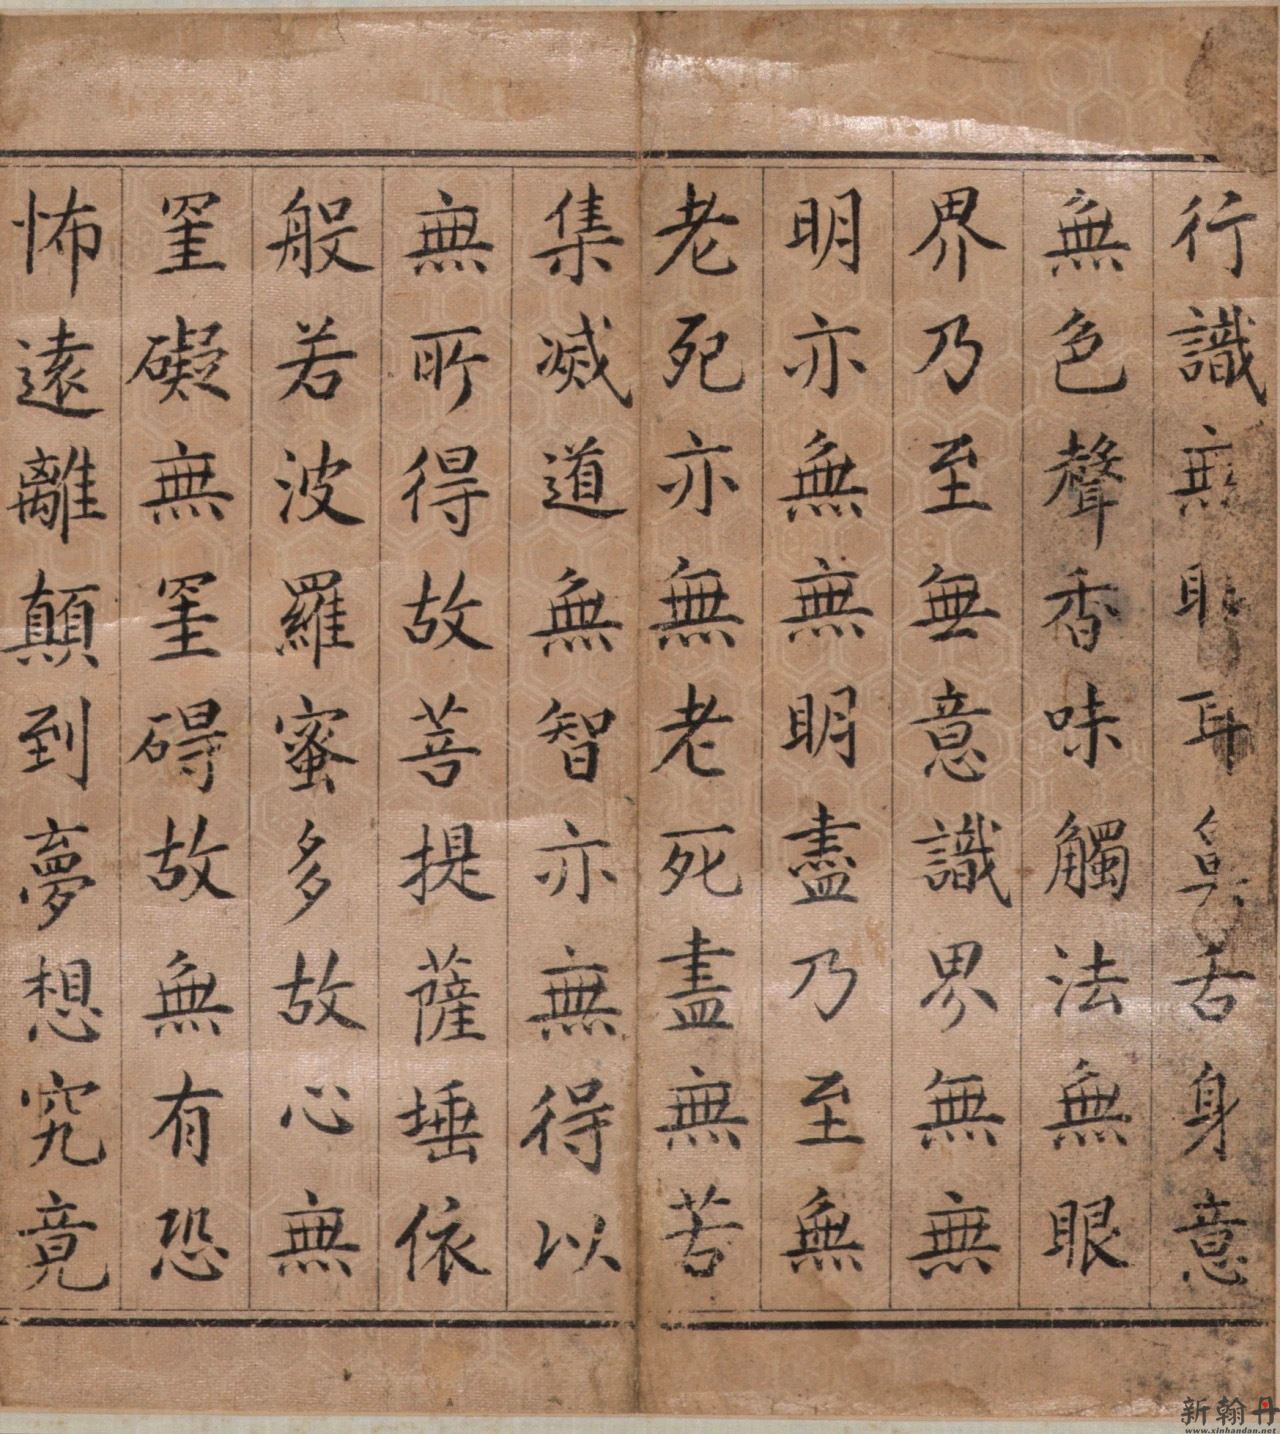 行識無眼耳鼻舌身意
無色聲香味觸法無眼
界乃至無意識界無無
明亦無無明盡乃至無
老死亦無老死盡無苦
集滅道無智亦無得以
無所得故菩提薩埵依
般若波羅蜜多故心無
罣礙無罣碍故無有恐
怖遠離顛到夢想究竟
新翰丹
www.xinhandan.net